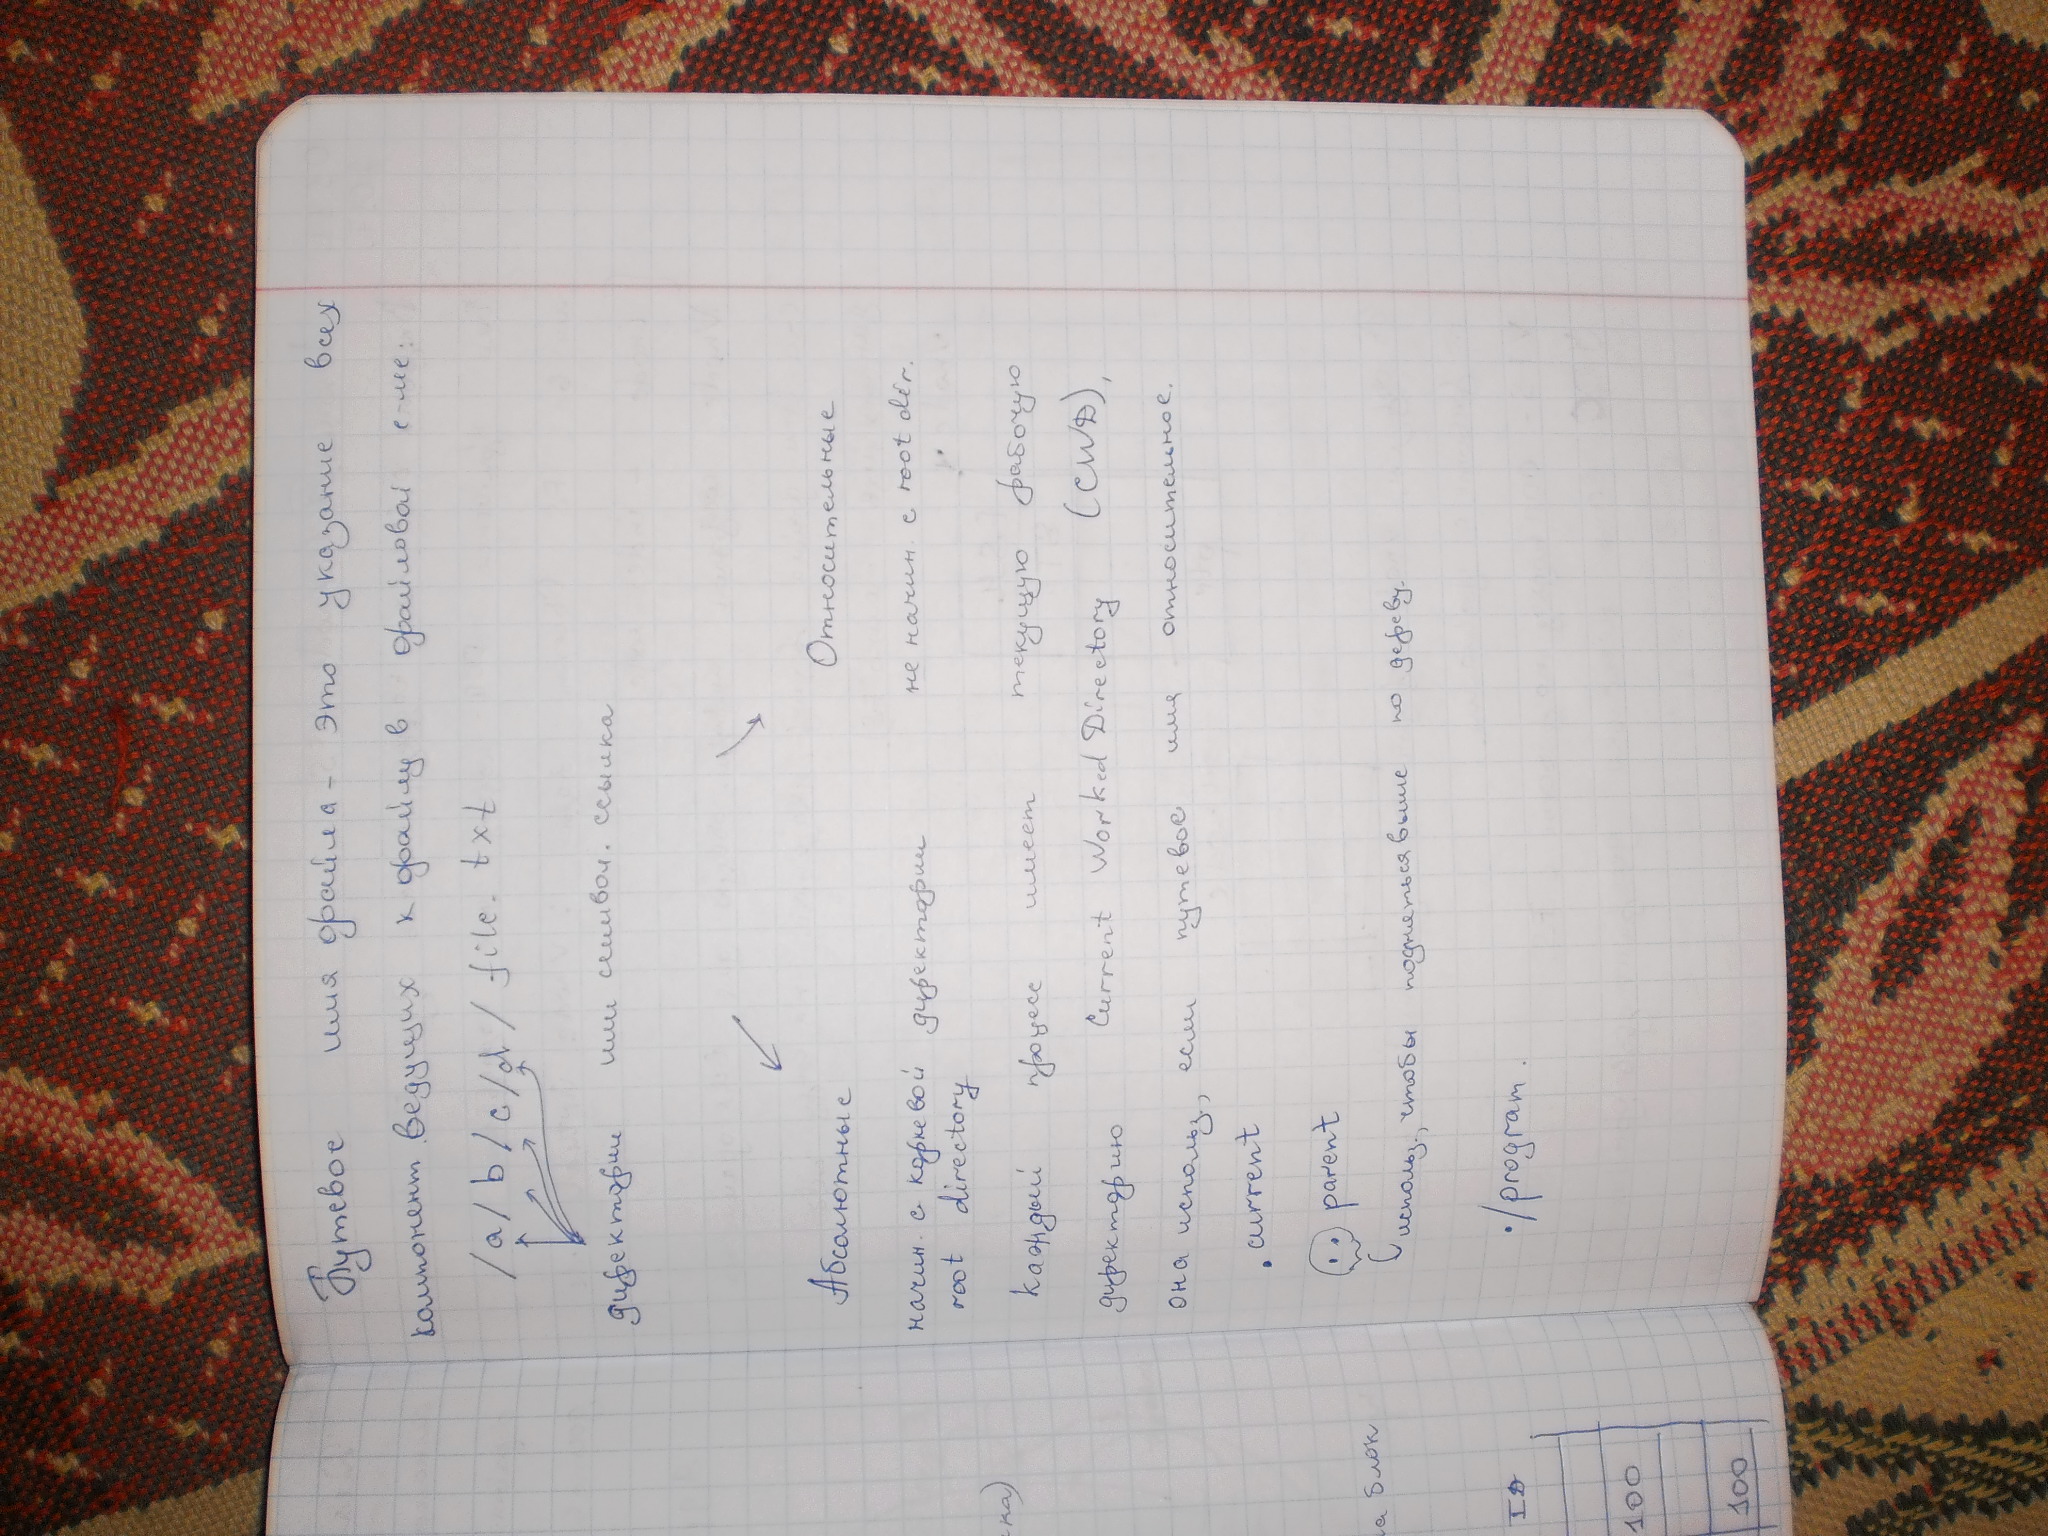 Путевое имя файла - это указание всех
компонент ведущих к файлу в файловой с-ме:
/a/b/c/d/file.txt
директории или символ. ссылка
Абсолютные Относительные
начин. с корневой директории не начин. с root dir.
root directory
каждый процесс имеет текущую рабочую
директорию Current Worked Directory (CWD),
она использ., если путевое имя относительное.
. current
.. parent
использ., чтобы подняться выше по дереву.
./program.
ска)
на блок
ID
100
100